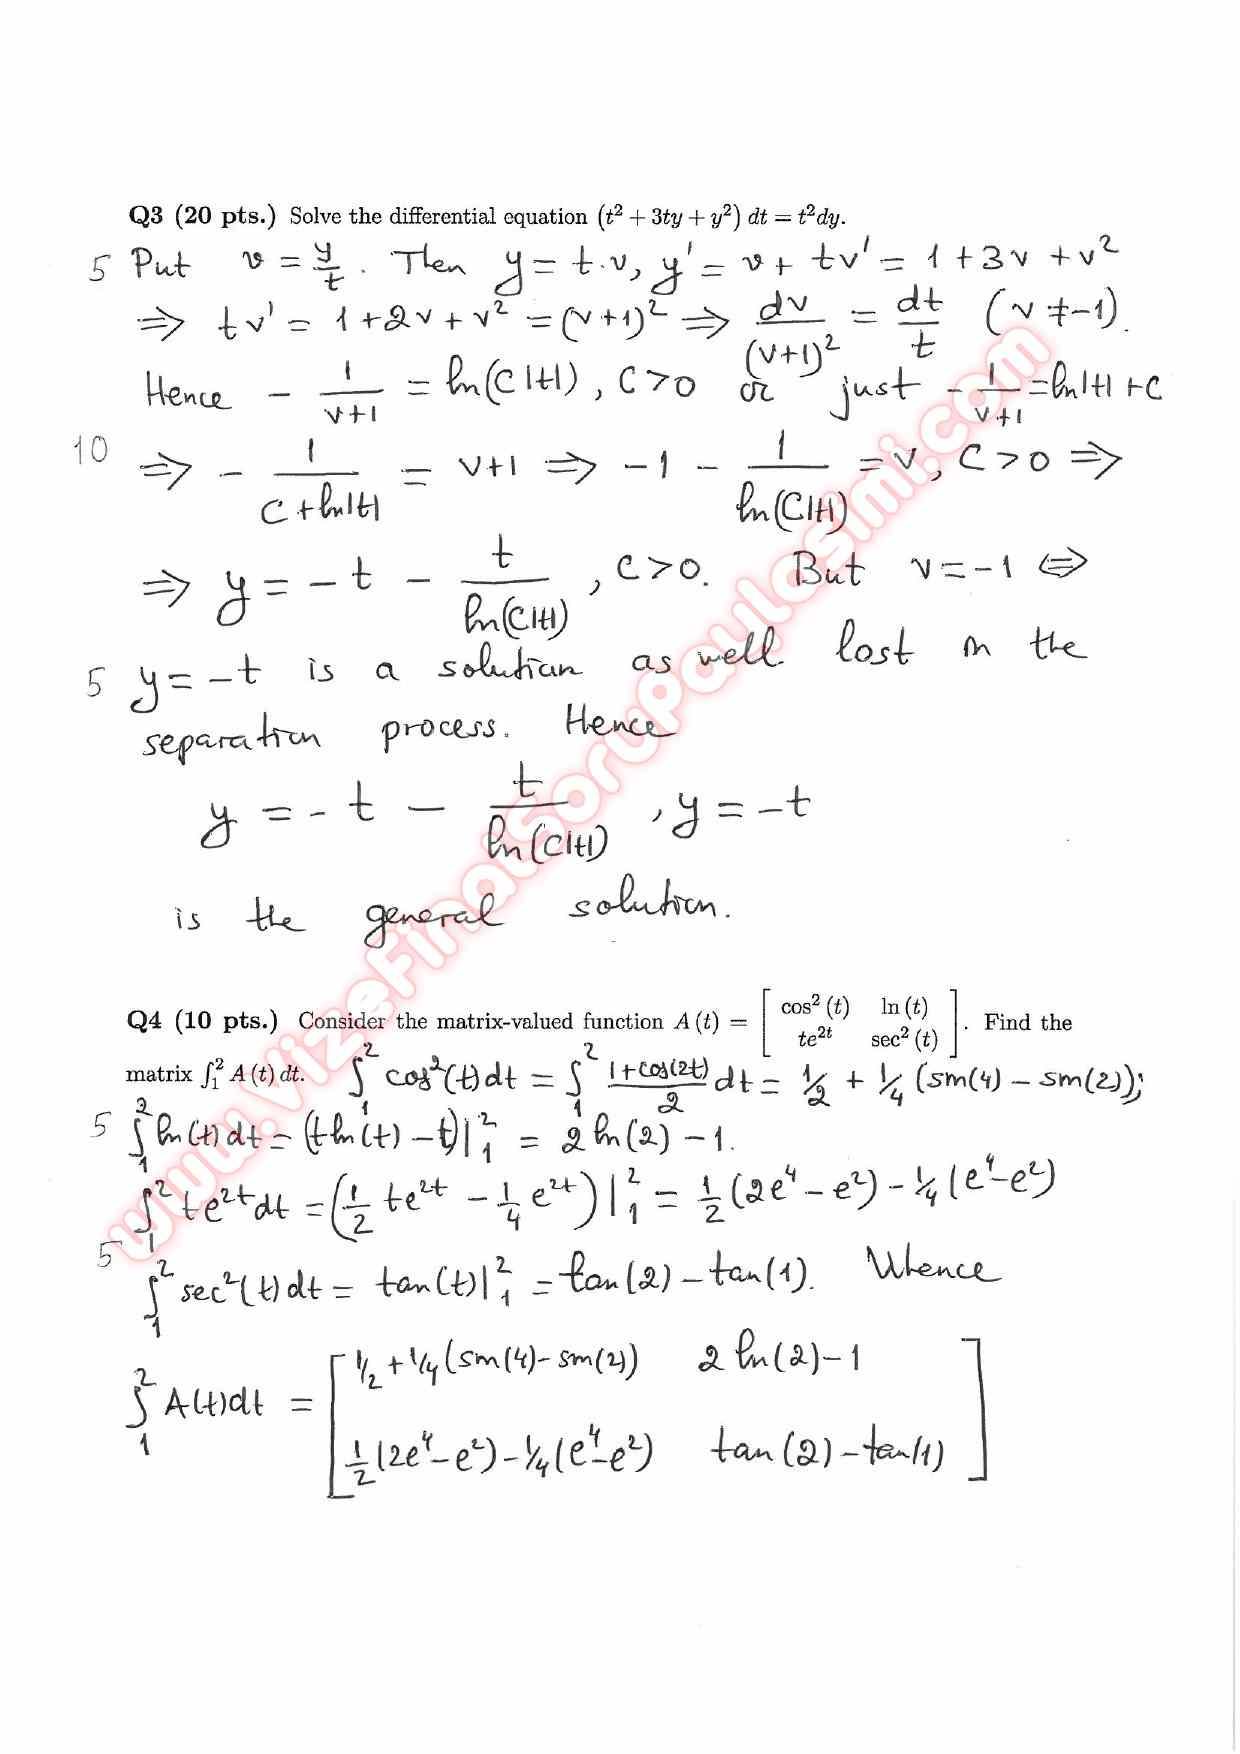 Q3 (20 pts.) Solve the differential equation (t² + 3ty + y²) dt = t²dy.
5 Put v = y/t. Then y = t·v, y' = v + tv' = 1 + 3v + v²
⇒ tv' = 1 + 2v + v² = (v+1)² ⇒ dv/(v+1)² = dt/t (v ≠ -1).
Hence - 1/(v+1) = ln(C|t|), C>0 or just - 1/(v+1) = ln|t| + C
10 ⇒ - 1/(C + ln|t|) = v+1 ⇒ -1 - 1/ln(C|t|) = v, C>0 ⇒
⇒ y = -t - t/ln(C|t|), C>0. But v = -1 ⇔
5 y = -t is a solution as well lost in the
separation process. Hence
y = -t - t/ln(C|t|), y = -t
is the general solution.
Q4 (10 pts.) Consider the matrix-valued function A(t) = [ cos²(t) ln(t) ; te^{2t} sec²(t) ]. Find the
matrix ∫₁² A(t) dt. ∫₁² cos²(t)dt = ∫₁² (1+cos(2t))/2 dt = 1/2 + 1/4 (sin(4) - sin(2));
5 ∫₁² ln(t)dt = (t ln(t) - t)|₁² = 2 ln(2) - 1.
∫₁² te^{2t}dt = (1/2 te^{2t} - 1/4 e^{2t})|₁² = 1/2 (2e⁴ - e²) - 1/4 (e⁴ - e²)
5 ∫₁² sec²(t)dt = tan(t)|₁² = tan(2) - tan(1). Whence
∫₁² A(t)dt = [ 1/2 + 1/4 (sin(4) - sin(2)) 2 ln(2) - 1
1/2 (2e⁴ - e²) - 1/4 (e⁴ - e²) tan(2) - tan(1) ]
www.VizeFinalSoruPaylasimi.com